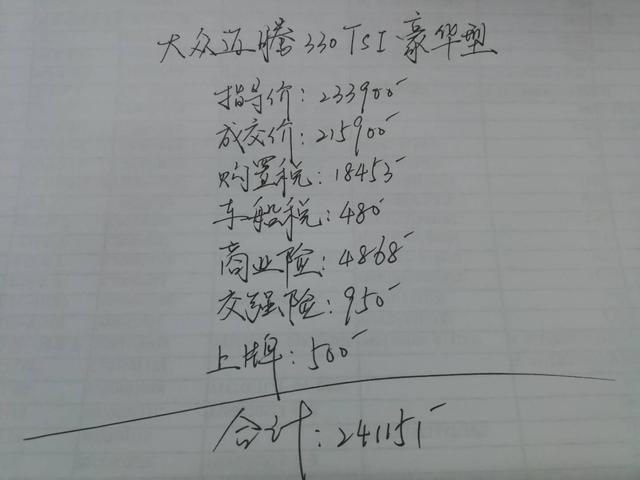 大众迈腾330TSI豪华型
指导价:233900
成交价:215900
购置税:18453
车船税:480
商业险:4868
交强险:950
上牌:500
合计:241151